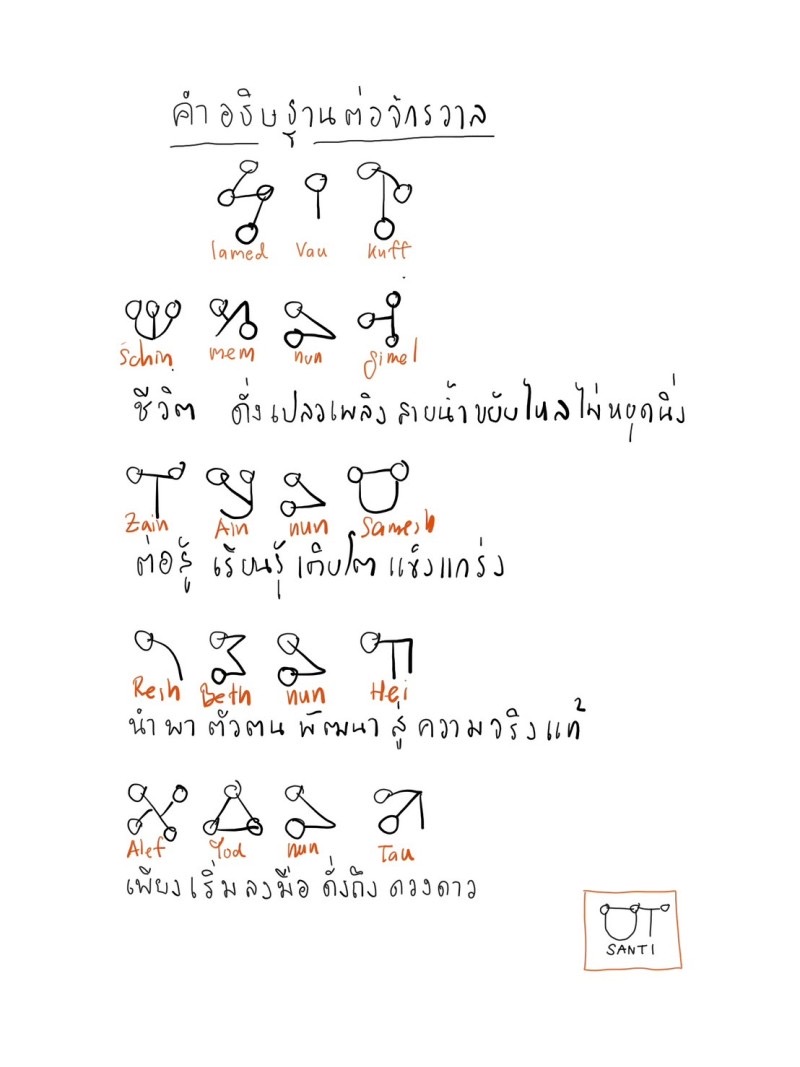 คำอธิษฐานต่อจักรวาล
lamed Vau Kuff
Schin mem nun gimel
ชีวิต ดั่งเปลวเพลิง สายน้ำขยับไหลไม่หยุดนิ่ง
Zain Ain nun Samesh
ต่อสู้ เรียนรู้ เติบโต แข็งแกร่ง
Resh Beth nun Hei
นำพา ตัวตน พัฒนา สู่ ความจริงแท้
Alef Yod nun Tau
เพียงเริ่มลงมือ ดั่งถึง ดวงดาว
SANTI